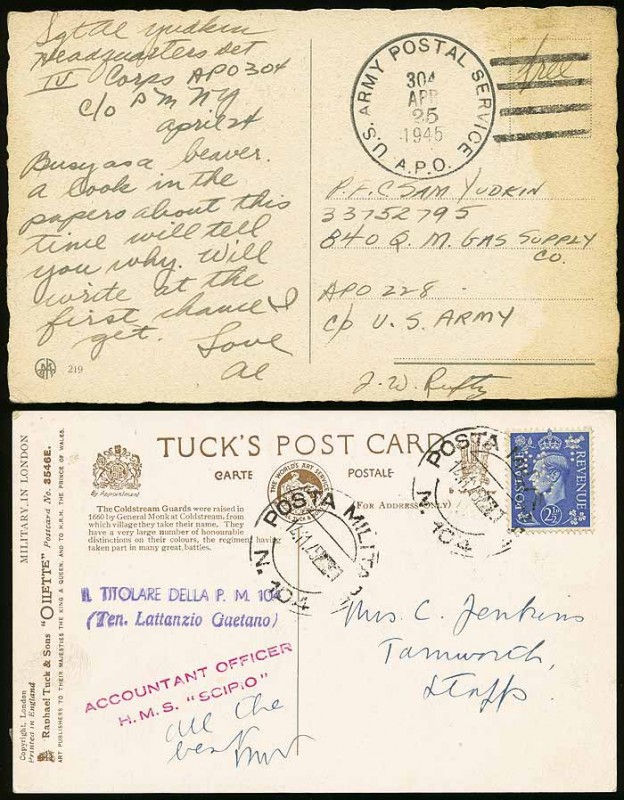 Sgt Al Yudkin
Headquarters Det
IV Corps APO 304
c/o P M NY
April 24
Busy as a beaver.
a look in the
papers about this
time will tell
you why. Will
write at the
first chance I
get. Love
Al
219
U.S. ARMY POSTAL SERVICE
304
APR
25
1945
A.P.O.
free
P.F.C SAM YUDKIN
33752795
840 Q. M. GAS SUPPLY
CO.
APO 228
c/o U. S. ARMY
MILITARY, IN LONDON
Raphael Tuck & Sons "OILETTE" Postcard No. 3546E.
ART PUBLISHERS TO THEIR MAJESTIES THE KING & QUEEN, AND TO H.R.H. THE PRINCE OF WALES.
Copyright, London
Printed in England
By Appointment
TUCK'S POST CARD
CARTE POSTALE
THE WORLD'S ART SERVICE
(FOR ADDRESS ONLY)
The Coldstream Guards were raised in
1660 by General Monk at Coldstream, from
which village they take their name. They
have a very large number of honourable
distinctions on their colours, the regiment having
taken part in many great battles.
POSTA MILITARE
N. 104
POSTA
N. 104
REVENUE
2½
IL TITOLARE DELLA P. M. 104
(Ten. Lattanzio Gaetano)
ACCOUNTANT OFFICER
H.M.S. "SCIPIO"
all the
best
Mrs C. Jenkins
Tamworth,
Staffs.